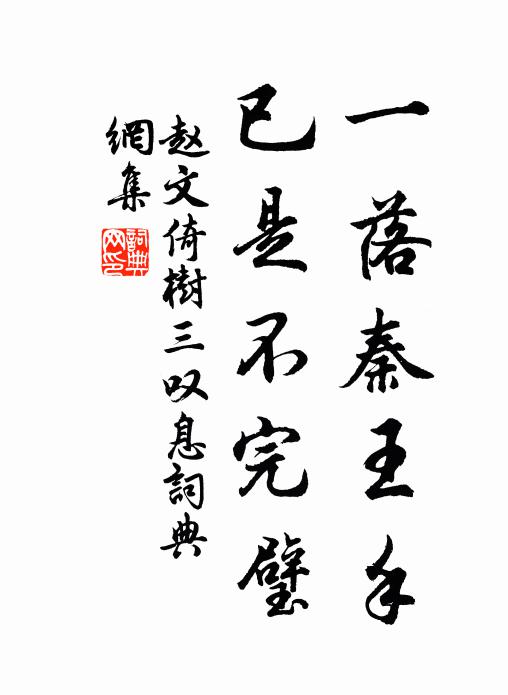 一落秦王手
已是不完璧
赵文倚樹三叹息詞典
網集
詞典
网印